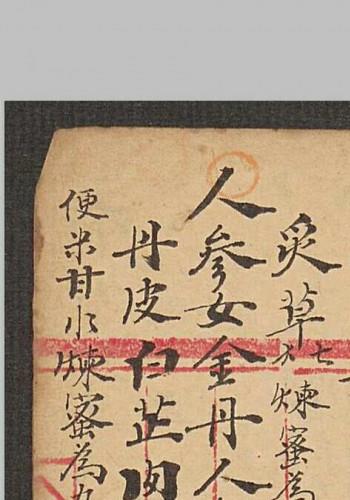 炙草七才煉蜜為
人參女金丹人
丹皮白芷肉
便米甘水煉蜜為丸